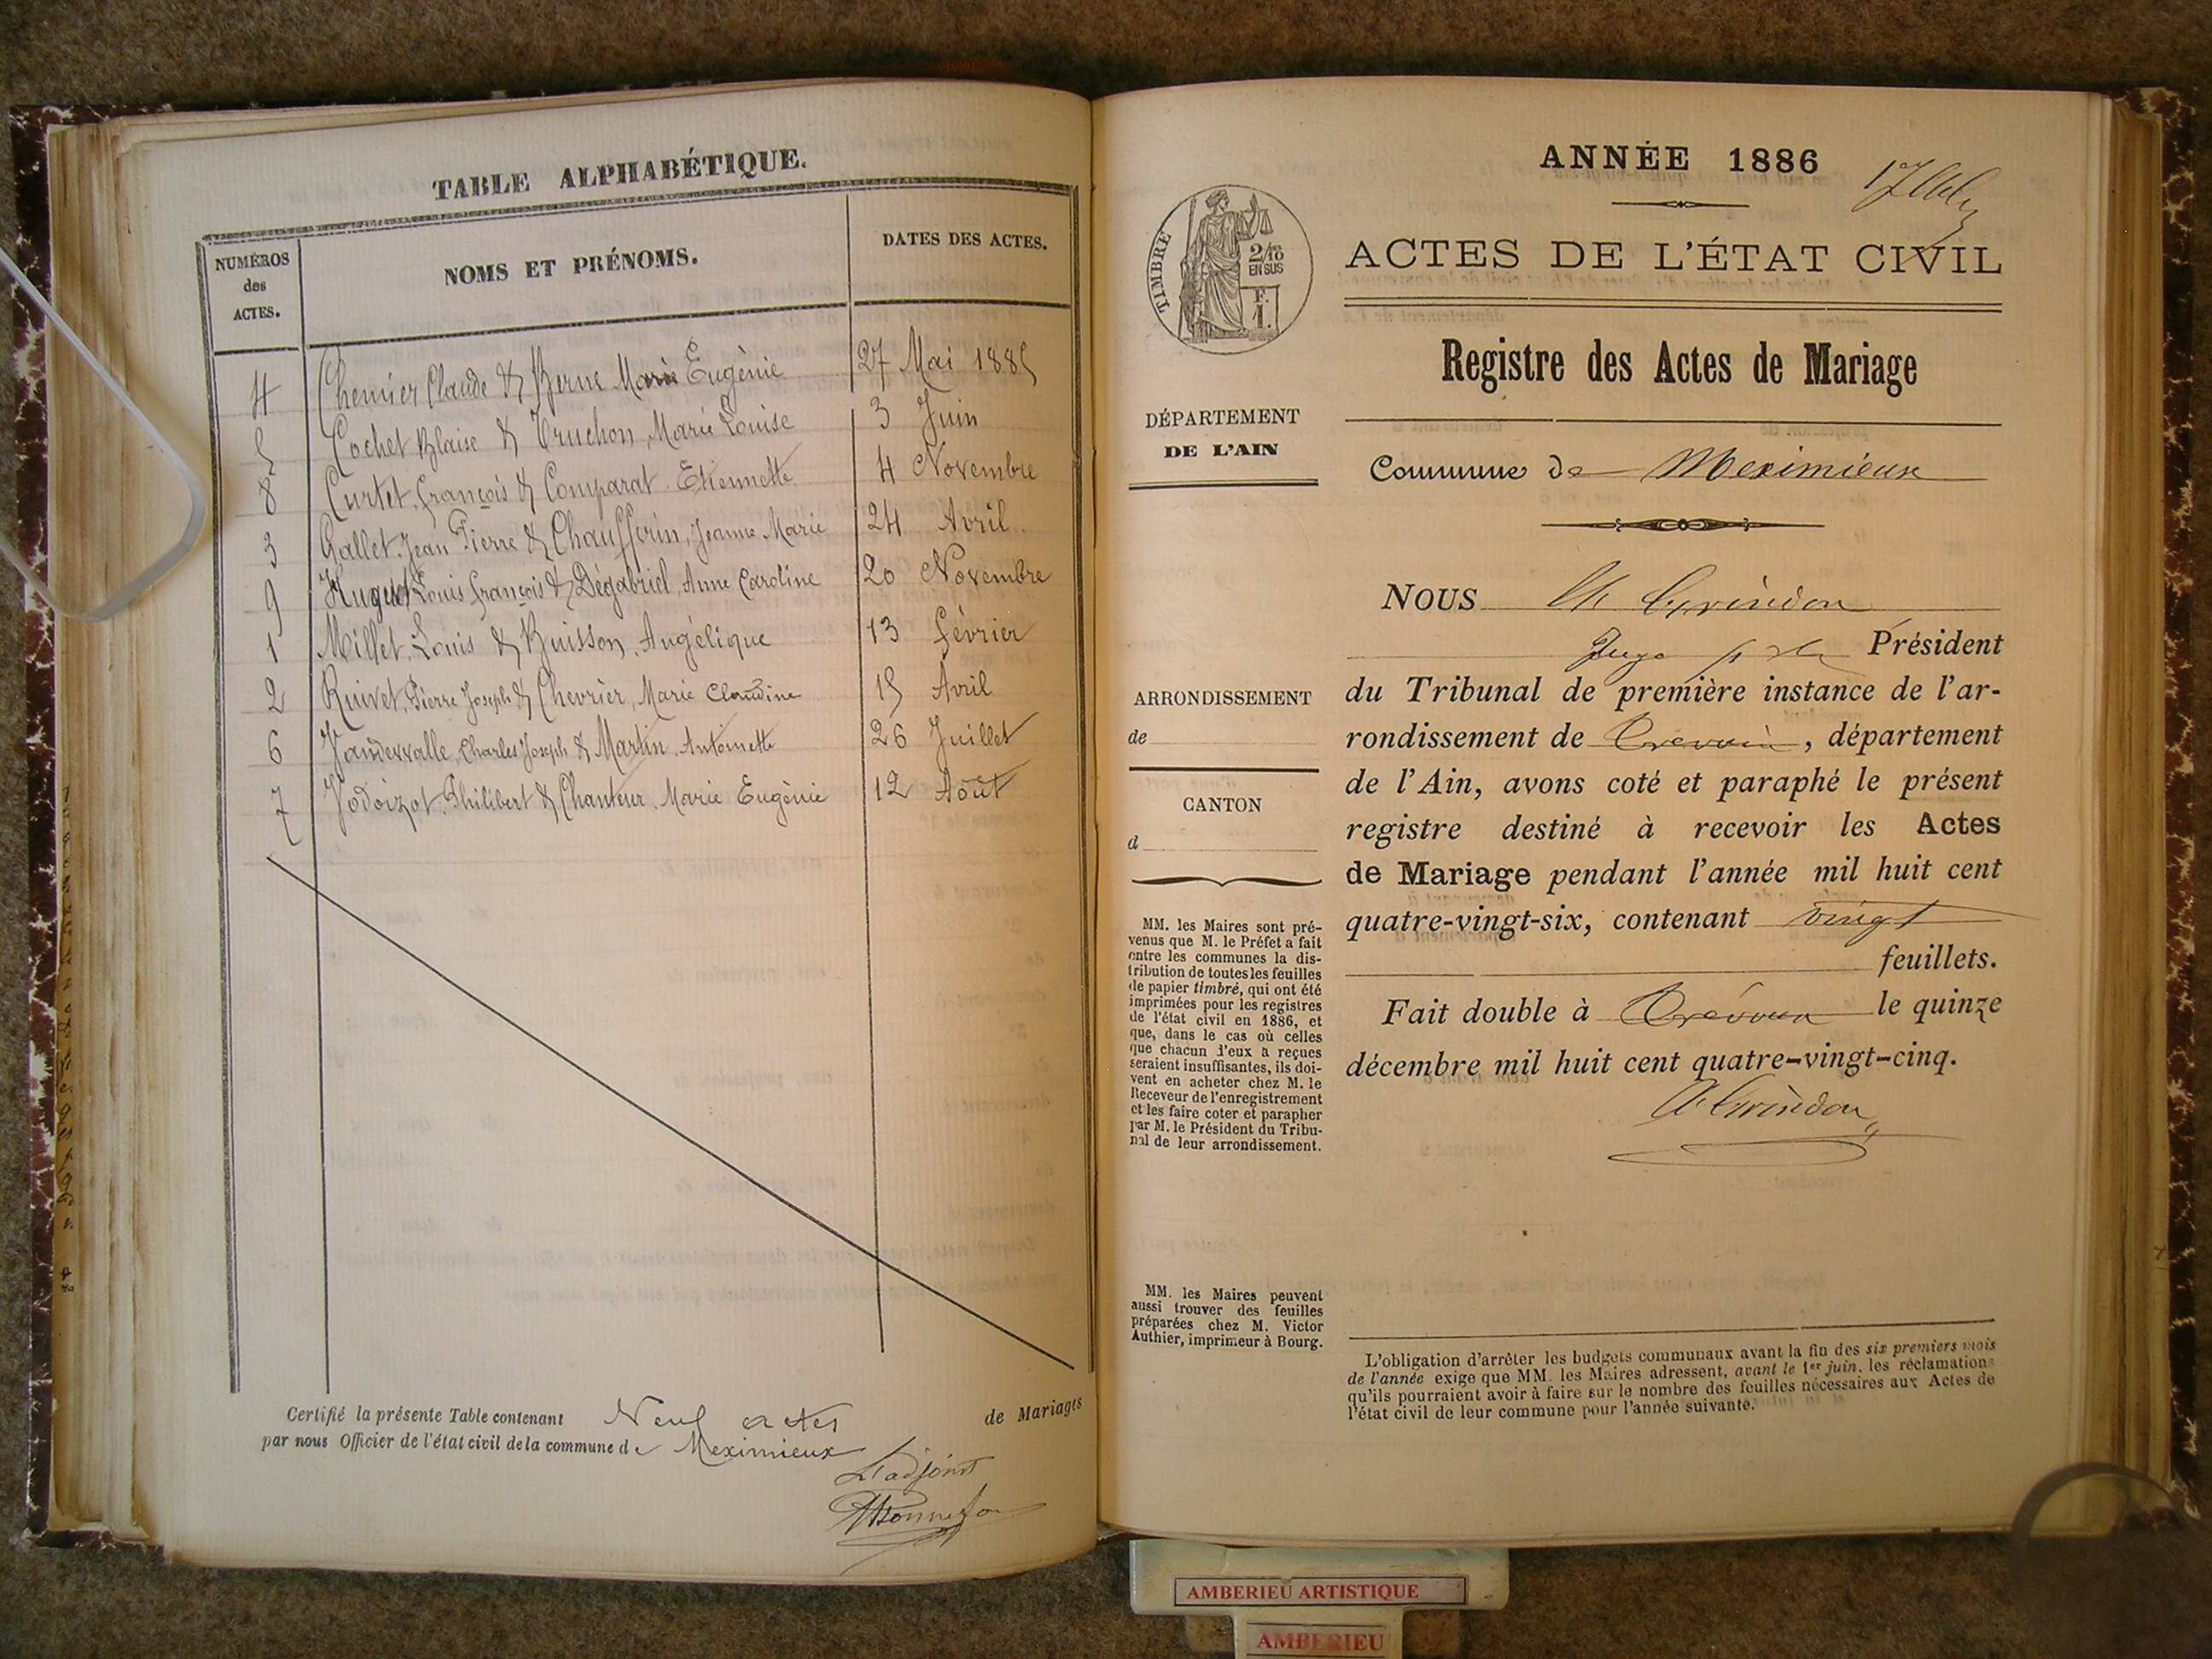 TABLE ALPHABÉTIQUE.
NUMÉROS
des
ACTES.
NOMS ET PRÉNOMS.
DATES DES ACTES.
4 Chenier Claude & Berne Marie Eugénie 27 Mai 1885
5 Cochet Blaise & Truchon, Marie Louise 3 Juin
8 Curtet, François & Comparat Etiennette 4 Novembre
3 Gallet, Jean Pierre & Chaufferin, Jeanne Marie 24 Avril
9 Huguet Louis François & Dégabriel, Anne Caroline 20 Novembre
1 Millet, Louis & Buisson, Angélique 13 Février
2 Ruivet, Pierre Joseph & Chevrier, Marie Claudine 15 Avril
6 Vanderwalle, Charles Joseph & Martin, Antoinette 26 Juillet
7 Vodoizot, Philibert & Chanteur, Marie Eugènie 12 Août
Certifié la présente Table contenant Neuf actes de Mariages
par nous Officier de l'état civil de la commune de Meximieux
L'adjoint
ANNÉE 1886
ACTES DE L'ÉTAT CIVIL
TIMBRE
2/10
EN SUS
F.
1.
Registre des Actes de Mariage
DÉPARTEMENT
DE L'AIN
Commune de Meximieux
NOUS Grindon
Juge Président
du Tribunal de première instance de l'ar-
rondissement de Trévoux, département
de l'Ain, avons coté et paraphé le présent
registre destiné à recevoir les Actes
de Mariage pendant l'année mil huit cent
quatre-vingt-six, contenant vingt
feuillets.
Fait double à Trévoux le quinze
décembre mil huit cent quatre-vingt-cinq.
Grindon
ARRONDISSEMENT
de
CANTON
d
MM. les Maires sont pré-
venus que M. le Préfet a fait
entre les communes la dis-
tribution de toutes les feuilles
de papier timbré, qui ont été
imprimées pour les registres
de l'état civil en 1886, et
que, dans le cas où celles
que chacun d'eux a reçues
seraient insuffisantes, ils doi-
vent en acheter chez M. le
Receveur de l'enregistrement
et les faire coter et parapher
par M. le Président du Tribu-
nal de leur arrondissement.
MM. les Maires peuvent
aussi trouver des feuilles
préparées chez M. Victor
Authier, imprimeur à Bourg.
L'obligation d'arrêter les budgets communaux avant la fin des six premiers mois
de l'année exige que MM. les Maires adressent, avant le 1er juin, les réclamations
qu'ils pourraient avoir à faire sur le nombre des feuilles nécessaires aux Actes de
l'état civil de leur commune pour l'année suivante.
AMBERIEU ARTISTIQUE
AMBERIEU